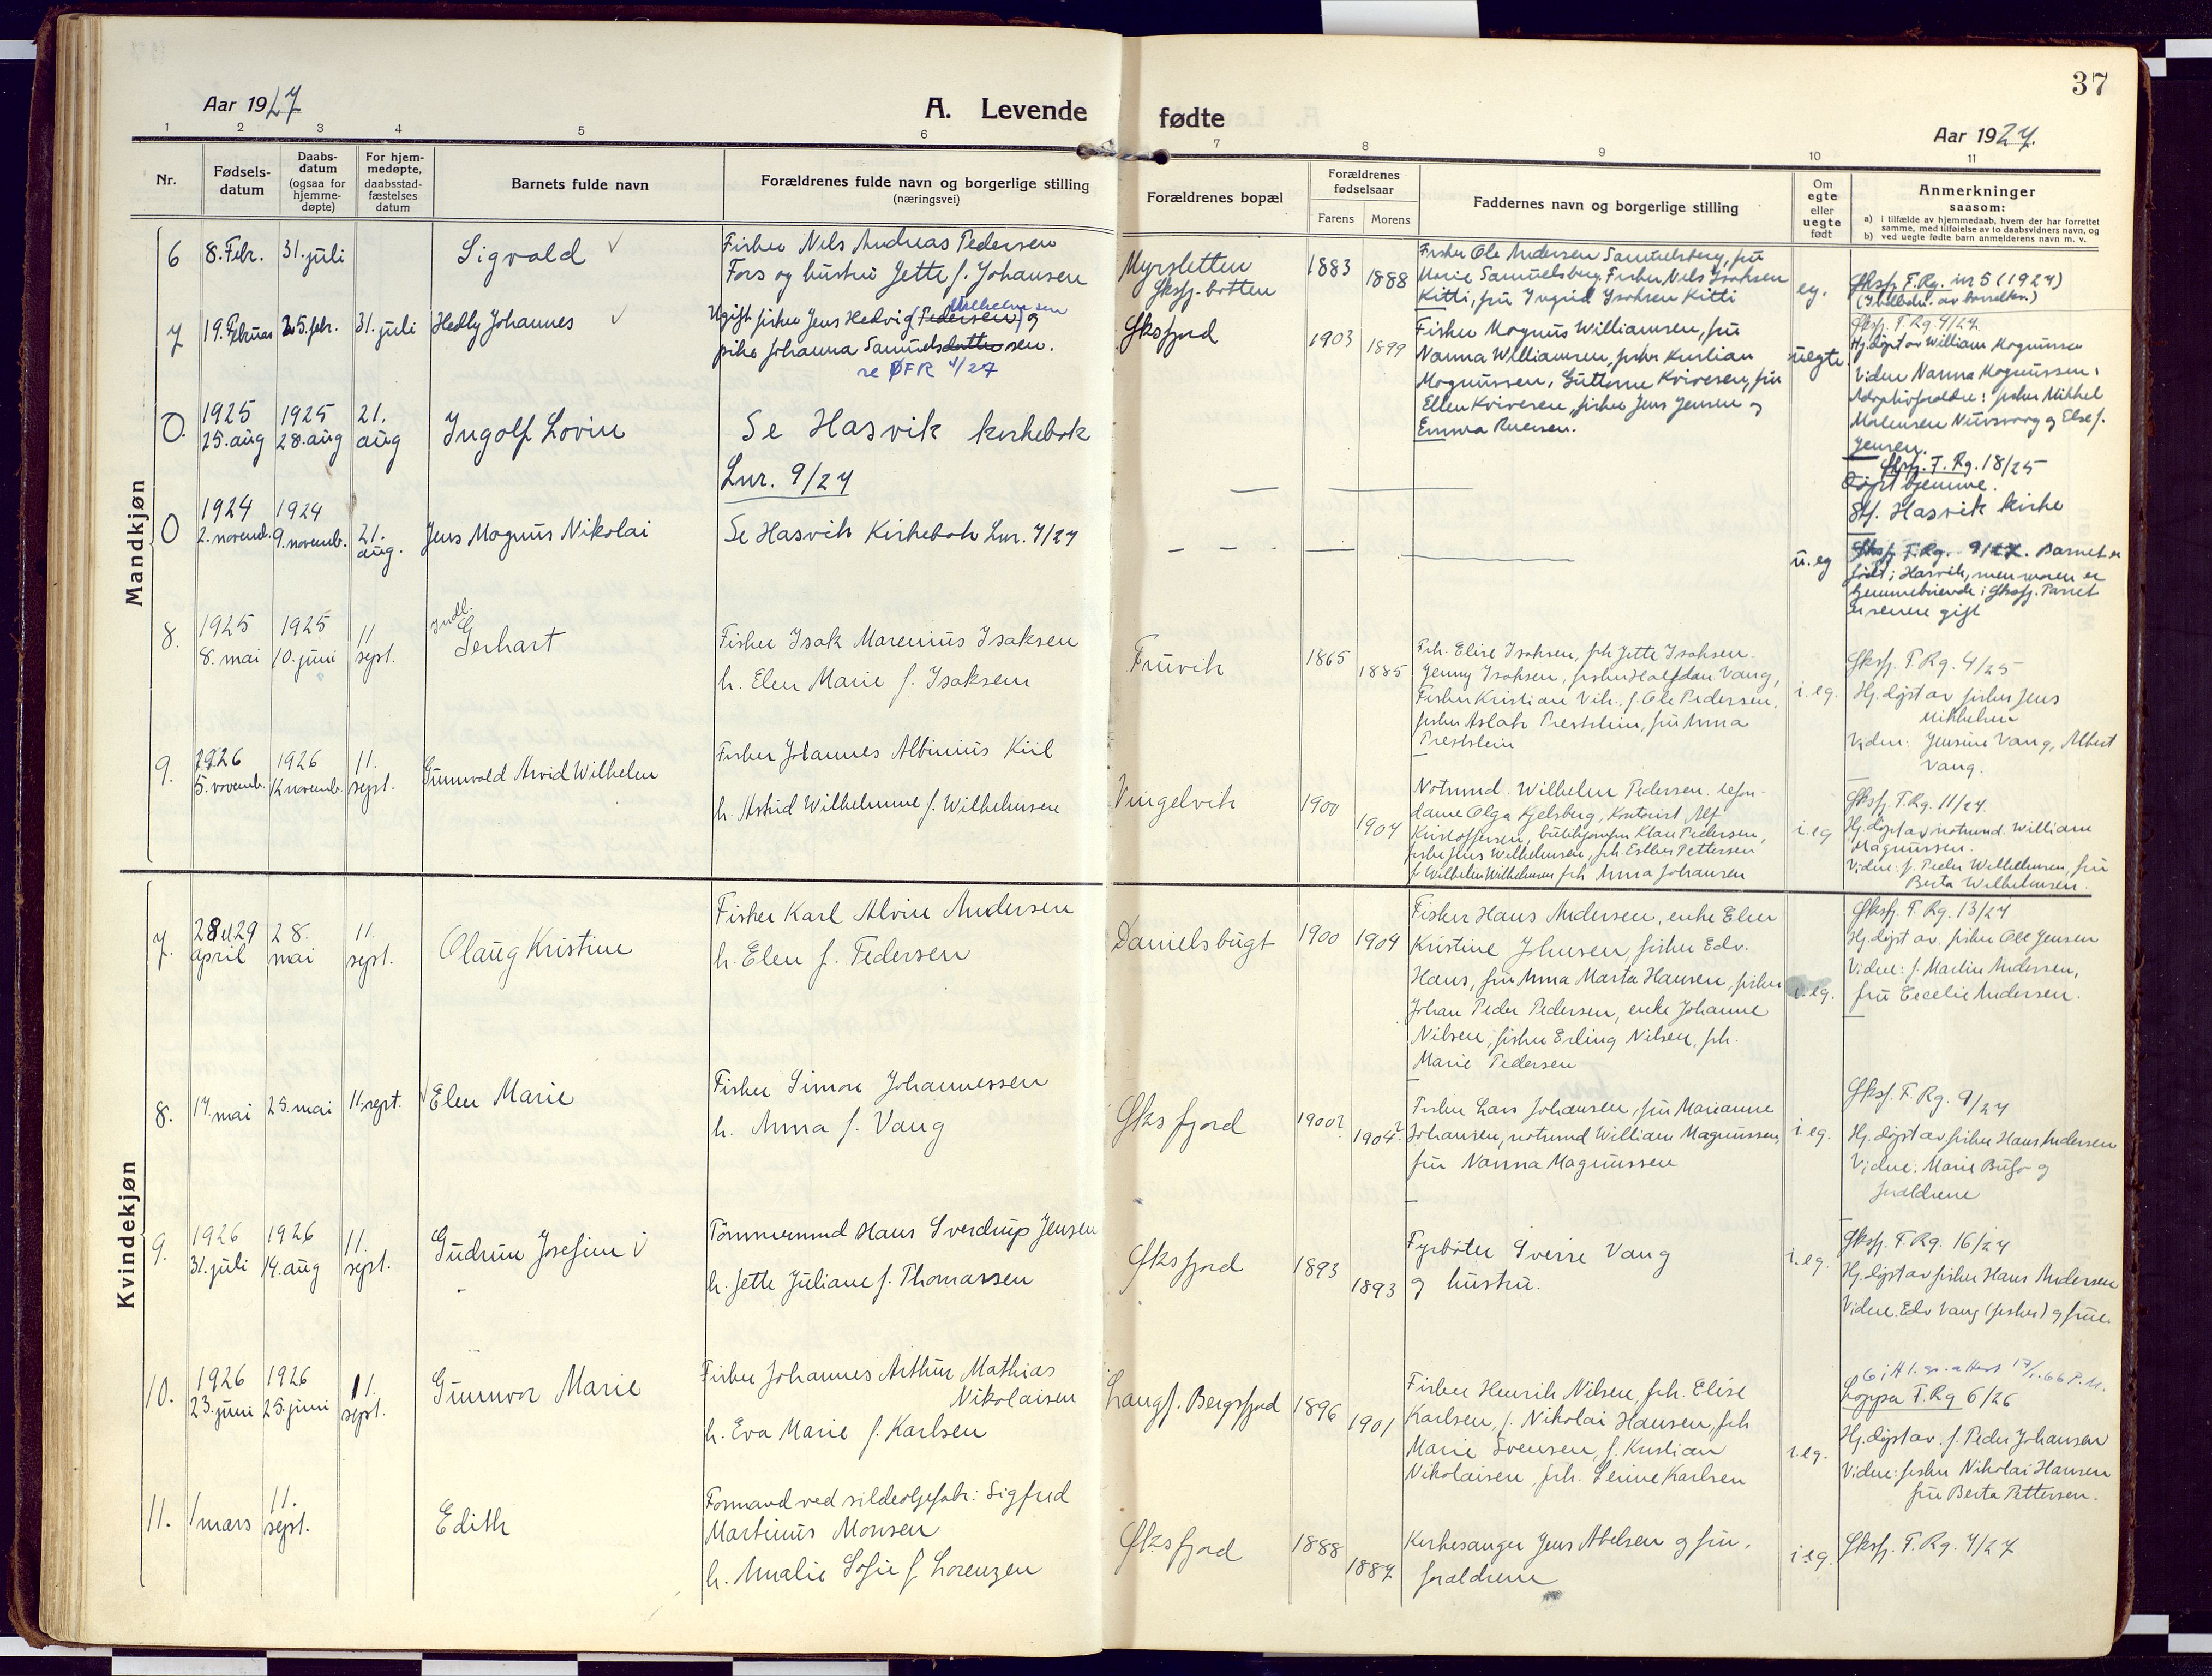 37
Aar 1927
A. Levende
fødte
Aar 1927.
1 2 3 4 5 6 7 8 9 10 11
Nr.
Fødsels-
datum
Daabs-
datum
(ogsaa for
hjemme-
døpte)
For hjem-
medøpte,
daabsstad-
fæstelses
datum
Barnets fulde navn
Forældrenes fulde navn og borgerlige stilling
(næringsvei)
Forældrenes bopæl
Forældrenes
fødselsaar
Farens Morens
Faddernes navn og borgerlige stilling
Om
egte
eller
uegte
født
Anmerkninger
saasom:
a) i tilfælde av hjemmedaab, hvem der har forrettet
samme, med tilføielse av to daabsvidners navn, og
b) ved uegte fødte barn anmelderens navn m. v.
Mandkjøn
6 8. Febr. 31. juli
Sigvald
Fisker Nils Andreas Pedersen
Fors og hustru Jette f. Johansen
Myrsletten
Øksfj. botten
1883 1888
Fisker Ole Andersen Samuelsberg, fru
Marie Samuelsberg, Fisker Nils Isaksen
Kitti, fru Ingrid Isaksen Kitti
eg.
Øksfj. F. Rg. nr 5 (1927)
7 19. Februar 25. febr. 31. juli
Hedly Johannes
Ugift fisker Jens Hedvig (Pedersen) Wilhelmsen og
pike Johanna Samuelsdatter sen.
se ØFR 4/27
Øksfjord
1903 1899
Fisker Magnus Williamsen, fru
Nanna Williamsen, fisker Kristian
Magnussen, Guttorm Kvivesen, fru
Ellen Kvivesen, fisker Jens Jensen og
Emma
uegte
Øksfj. F. Rg. 4/27
Hj. døpt av William Magnussen
Vidne Nanna Magnussen.
Adoptivforældre: fisker Mikkel
Mathisen Nuvsvaag og Else f.
Jensen.
0. 1925 25. aug 1925 28. aug 21. aug
Ingolf Lovin
Se Hasvik kirkebok
Lnr. 9/27
Øksfj. F. Rg. 18/25
Døpt hjemme.
Stf. Hasvik kirke
0 1924 2. novemb. 1924 9. novemb. 21. aug.
Jens Magnus Nikolai
Se Hasvik Kirkebok Lnr. 7/27
u. eg
Øksfj. F. Rg. 9/27. Barnet er
født i Hasvik, men moren er
hjemmehørende i Øksfj. Parret
er senere gift
8. 1925 8. mai 1925 10. juni 11 sept.
Indl.
Gerhart
Fisker Isak Marenius Isaksen
h. Elen Marie f. Isaksen
Fruvik
1865 1885
Frk. Elise Isaksen, frk Jette Isaksen.
Jenny Isaksen, fisker Halfdan Vang,
Fisker Kristian Vik, f. Ole Pedersen,
fisker Aslak Prestslein, fru Anna
Prestslein
i. eg.
Øksfj. F. Rg. 4/25
Hj. døpt av fisker Jens
Mikkelsen
Vidne: Jensine Vang, Albert
Vang.
9. 1926 5. novemb. 1926 12 novemb. 11. sept.
Gunnvald Arvid Wilhelm
Fisker Johannes Albinius Kiil
h. Astrid Wilhelmine f. Wilhelmsen
Vingelvik
1900 1904
Notmand Wilhelm Pedersen.
dame Olga Kjelsberg, Kontorist Alf
Kristoffersen, butikhjomfru Klara Pedersen,
fisker Jens Wilhelmsen, frk. Esther Pettersen
f Wilhelm Wilhelmsen frk Anna Johansen
i. eg
Øksfj. F. Rg. 11/27.
Hj. døpt av notmand William
Magnussen.
Vidne: f. Peder Wilhelmsen, fru
Berta Wilhelmsen.
Kvindekjøn
7. 28 el 29 april 28. mai 11. sept.
Olaug Kristine
Fisker Karl Alvin Andersen
h. Elen f. Pedersen
Danielsbugt
1900 1904
Fisker Hans Andersen, enke Elen
Kristine Johnsen, fisker Edv.
Hans, fru Anna Marta Hansen, fisker
Johan Peder Pedersen, enke Johanne
Nilsen, fisker Erling Nilsen, frk.
Marie Pedersen
i. eg.
Øksfj. F. Rg. 13/27
Hj. døpt av. fisker Ole Jensen
Vidne: f. Martin Andersen,
fru Cecelie Andersen.
8. 17. mai 25. mai 11. sept.
Elen Marie
Fisker Simon Johannessen
h. Anna f. Vang
Øksfjord
1900? 1904?
Fisker Lars Johansen, fru Marianne
Johansen, notmand William Magnussen,
fru Nanna Magnussen
i. eg.
Øksf. F. Rg. 9/27
Hj. døpt av fisker Hans Andersen
Vidne: Marie og
forældrene
9. 1926 31. juli 1926 14. aug 11. sept.
Gudrun Josefine
Tømmermand Hans Sverdrup Jensen
h. Jette Juliane f. Thomassen
Øksfjord
1893 1893
Fyrbøter Sverre Vang
og hustru.
i. eg.
Øksfj. F. Rg. 16/27
Hj. døpt av fisker Hans Andersen
Vidne. Edv Vang (fisker) og frue.
10. 1926 23. juni 1926 25. juni 11. sept.
Gunnvor Marie
Fisker Johannes Arthur Mathias
Nikolaisen
h. Eva Marie f. Karlsen
Langf. Bergsfjord
1896 1901
Fisker Henrik Nilsen, frk. Elise
Karlsen, f. Nikolai Hansen, frk
Marie Svensen, f. Kristian
Nikolaisen, frk. Lenine Karlsen
i. eg.
Loppa F. Rg 6/26
Hj. døpt av. f. Peder Johansen
Vidne: fisker Nikolai Hansen
fru Berta Pettersen.
11. 1 mars 11. sept.
Edith
Formand ved sildeoljefabr: Sigfred
Martinus Monsen
h. Amalie Sofie f. Lorenzen
Øksfjord
1888 1887
Kirkesanger Jens Abelsen og fru,
forældrene
i. eg.
Øksfj. F. Rg. 7/27